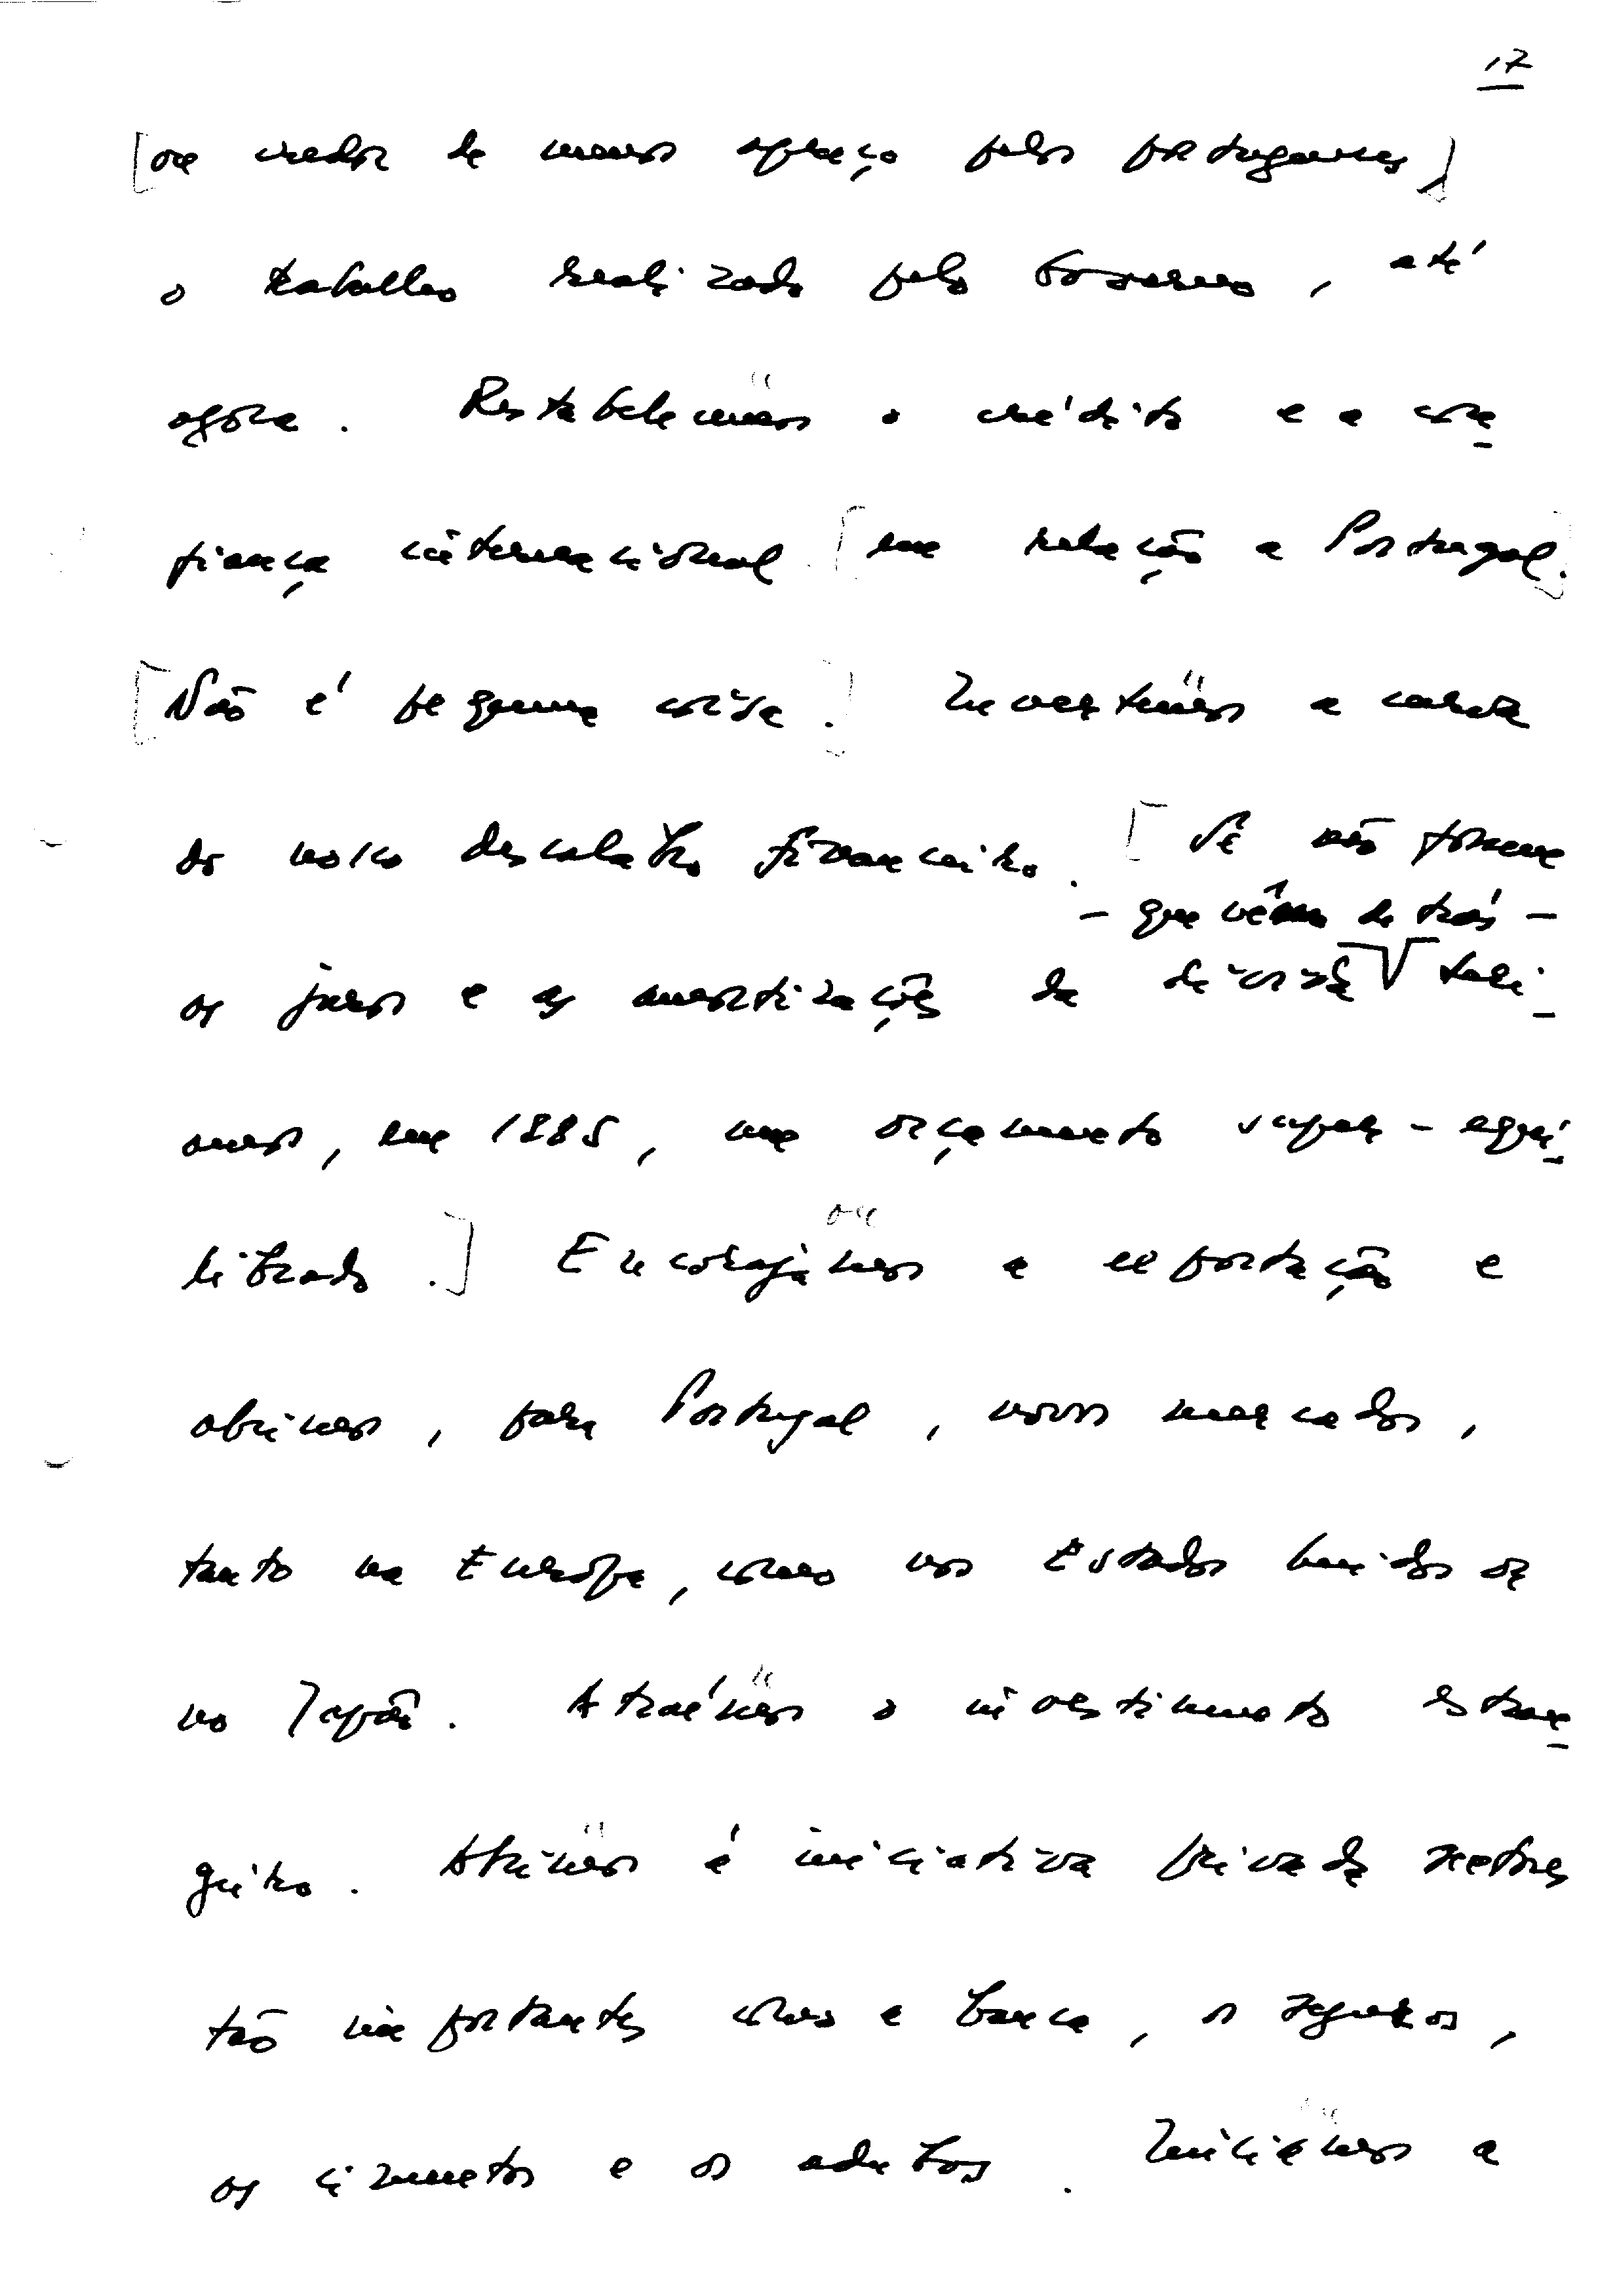 17
[ou credor de menos apreço pelos portugueses,]
o trabalho realizado pelo Governo, até
agora. Restabelecemos o crédito e a con-
fiança internacional [em relação a Portugal.]
[Não é pequena coisa.] Invertemos a curva
do nosso descalabro financeiro. [Se não fossem
- que vêm de trás -
os juros e as amortizações da dívida terí-
amos, em 1985, um orçamento super-equi-
librado.] Encorajámos a exportação e
abrimos, para Portugal, novos mercados,
tanto na Europa, como nos Estados Unidos ou
no Japão. Atraímos o investimento estran-
geiro. Abrimos à iniciativa privada sectores
tão importantes como a banca, os seguros,
os cimentos e os adubos. Iniciámos a